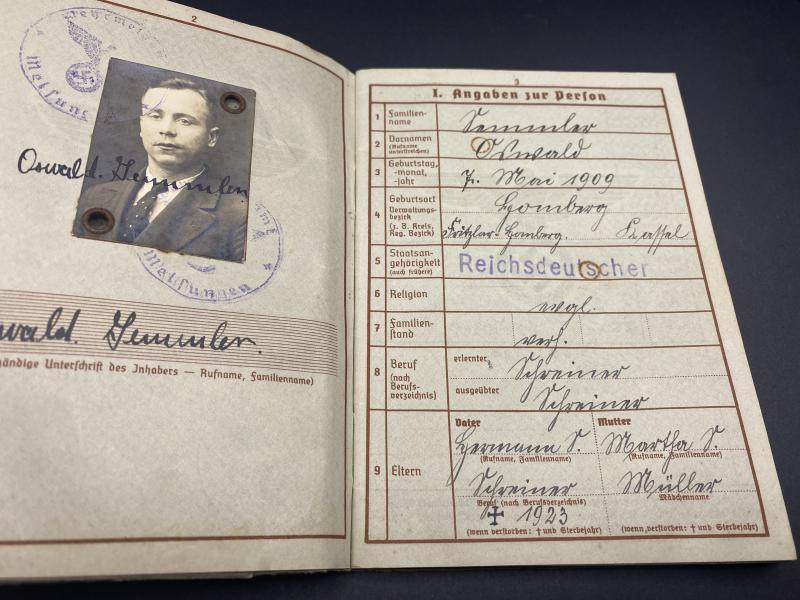 2
Melsungen
Oswald. Semmler.
Melsungen
Oswald. Semmler.
händige Unterschrift des Inhabers — Rufname, Familienname)
3
I. Angaben zur Person
1 Familien-
name
Semmler
2 Vornamen
(Rufname
unterstreichen)
Oswald
3 Geburtstag,
-monat,
-jahr
7. Mai 1909
4 Geburtsort
Verwaltungs-
bezirk
(z. B. Kreis,
Reg. Bezirk)
Homberg
Fritzlar-Homberg. Kassel
5 Staatsan-
gehörigkeit
(auch frühere)
Reichsdeutscher
6 Religion
evgl.
7 Familien-
stand
verh.
8 Beruf
(nach
Berufs-
verzeichnis)
erlernter
Schreiner
ausgeübter
Schreiner
9 Eltern
Vater Mutter
Hermann S. Martha S.
(Rufname, Familienname) (Rufname, Familienname)
Schreiner Müller
Beruf (nach Berufsverzeichnis) Mädchenname
† 1923
(wenn verstorben: † und Sterbejahr) (wenn verstorben: † und Sterbejahr)